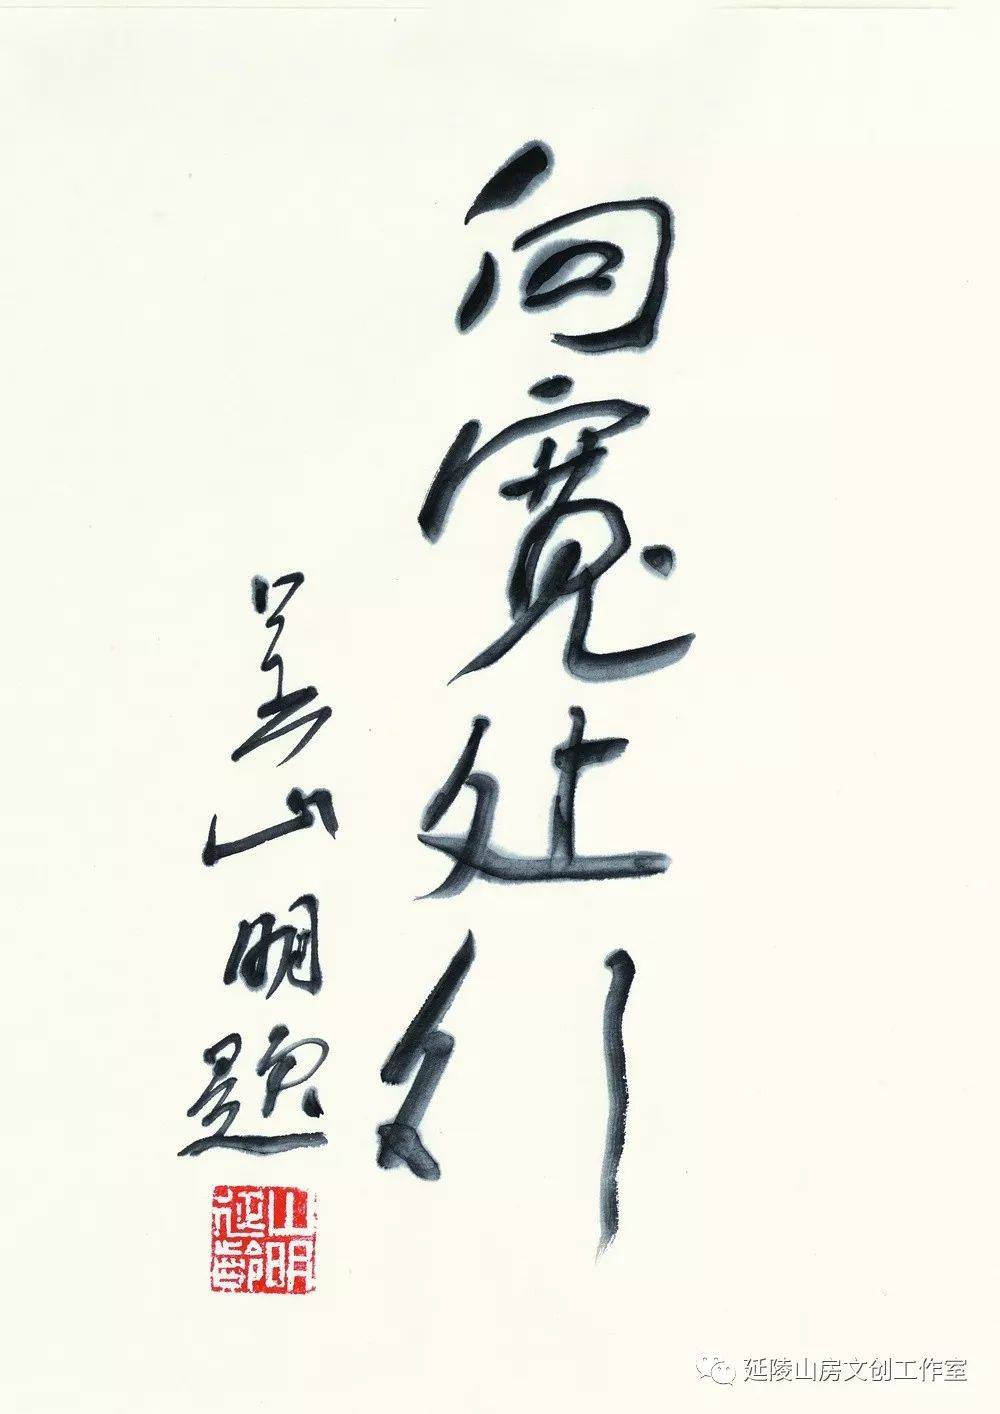 向宽处行
姜山明题
山明延龄
延陵山房文创工作室